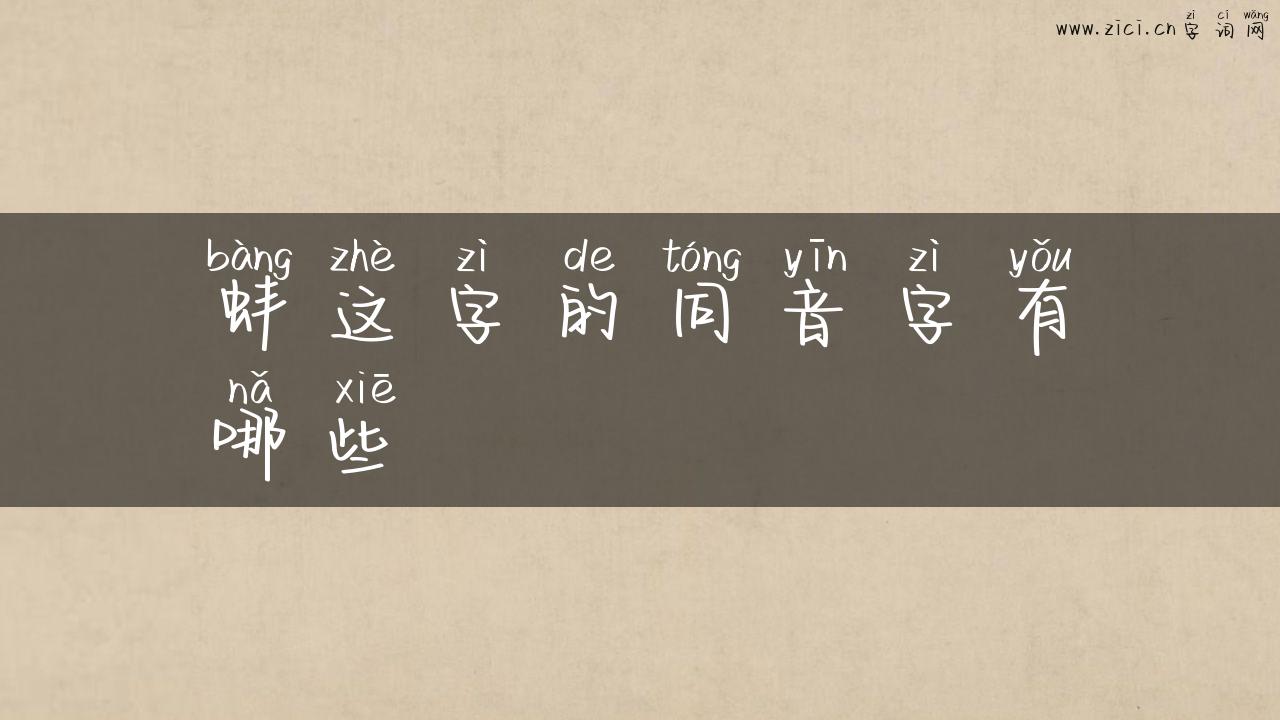 zì cí wǎng
www.zici.cn 字词网
bàng zhè zì de tóng yīn zì yǒu
蚌这字的同音字有
nǎ xiē
哪些